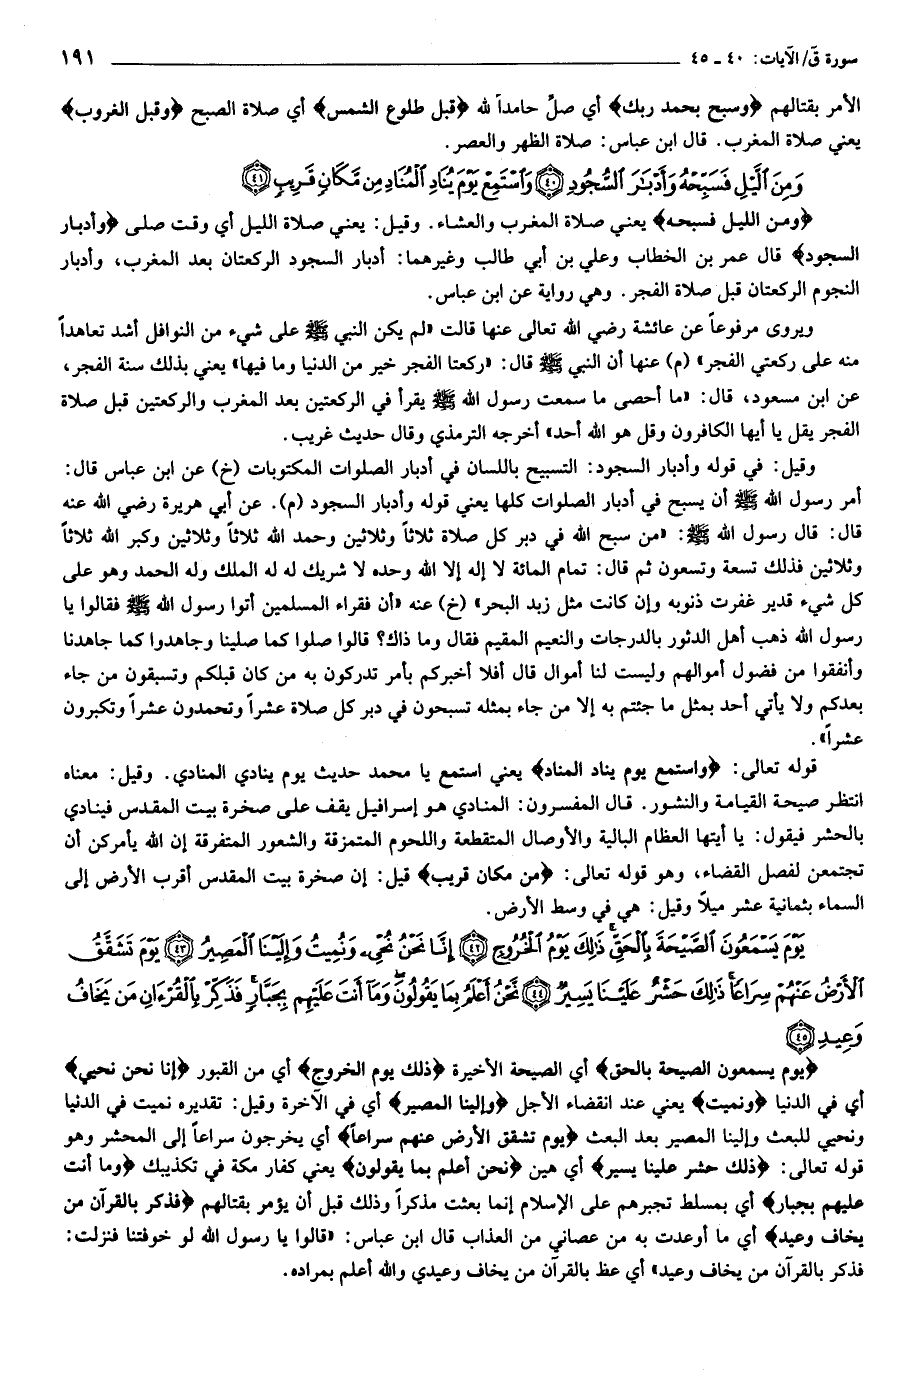 سورة قۤ/ الآيات: ٤٠ ـ ٤٥ ١٩١
الأمر بقتالهم ﴿وسبح بحمد ربك﴾ أي صلِّ حامداً لله ﴿قبل طلوع الشمس﴾ أي صلاة الصبح ﴿وقبل الغروب﴾
يعني صلاة المغرب. قال ابن عباس: صلاة الظهر والعصر.
وَمِنَ ٱلَّيْلِ فَسَبِّحْهُ وَأَدْبَٰرَ ٱلسُّجُودِ ﴿٤٠﴾ وَٱسْتَمِعْ يَوْمَ يُنَادِ ٱلْمُنَادِ مِن مَّكَانٍ قَرِيبٍ ﴿٤١﴾
﴿ومن الليل فسبحه﴾ يعني صلاة المغرب والعشاء. وقيل: يعني صلاة الليل أي وقت صلى ﴿وأدبار
السجود﴾ قال عمر بن الخطاب وعلي بن أبي طالب وغيرهما: أدبار السجود الركعتان بعد المغرب، وأدبار
النجوم الركعتان قبل صلاة الفجر. وهي رواية عن ابن عباس.
ويروى مرفوعاً عن عائشة رضي الله تعالى عنها قالت «لم يكن النبي ﷺ على شيء من النوافل أشد تعاهداً
منه على ركعتي الفجر» (م) عنها أن النبي ﷺ قال: «ركعتا الفجر خير من الدنيا وما فيها» يعني بذلك سنة الفجر،
عن ابن مسعود، قال: «ما أحصى ما سمعت رسول الله ﷺ يقرأ في الركعتين بعد المغرب والركعتين قبل صلاة
الفجر يقل يا أيها الكافرون وقل هو الله أحد» أخرجه الترمذي وقال حديث غريب.
وقيل: في قوله وأدبار السجود: التسبيح باللسان في أدبار الصلوات المكتوبات (خ) عن ابن عباس قال:
أمر رسول الله ﷺ أن يسبح في أدبار الصلوات كلها يعني قوله وأدبار السجود (م). عن أبي هريرة رضي الله عنه
قال: قال رسول الله ﷺ: «من سبح الله في دبر كل صلاة ثلاثاً وثلاثين وحمد الله ثلاثاً وثلاثين وكبر الله ثلاثاً
وثلاثين فذلك تسعة وتسعون ثم قال: تمام المائة لا إله إلا الله وحده لا شريك له له الملك وله الحمد وهو على
كل شيء قدير غفرت ذنوبه وإن كانت مثل زبد البحر» (خ) عنه «أن فقراء المسلمين أتوا رسول الله ﷺ فقالوا يا
رسول الله ذهب أهل الدثور بالدرجات والنعيم المقيم فقال وما ذاك؟ قالوا صلوا كما صلينا وجاهدوا كما جاهدنا
وأنفقوا من فضول أموالهم وليست لنا أموال قال أفلا أخبركم بأمر تدركون به من كان قبلكم وتسبقون من جاء
بعدكم ولا يأتي أحد بمثل ما جئتم به إلا من جاء بمثله تسبحون في دبر كل صلاة عشراً وتحمدون عشراً وتكبرون
عشراً».
قوله تعالى: ﴿واستمع يوم يناد المناد﴾ يعني استمع يا محمد حديث يوم ينادي المنادي. وقيل: معناه
انتظر صيحة القيامة والنشور. قال المفسرون: المنادي هو إسرافيل يقف على صخرة بيت المقدس فينادي
بالحشر فيقول: يا أيتها العظام البالية والأوصال المتقطعة واللحوم المتمزقة والشعور المتفرقة إن الله يأمركن أن
تجتمعن لفصل القضاء، وهو قوله تعالى: ﴿من مكان قريب﴾ قيل: إن صخرة بيت المقدس أقرب الأرض إلى
السماء بثمانية عشر ميلاً وقيل: هي في وسط الأرض.
يَوْمَ يَسْمَعُونَ ٱلصَّيْحَةَ بِٱلْحَقِّ ۚ ذَٰلِكَ يَوْمُ ٱلْخُرُوجِ ﴿٤٢﴾ إِنَّا نَحْنُ نُحْىِۦ وَنُمِيتُ وَإِلَيْنَا ٱلْمَصِيرُ ﴿٤٣﴾ يَوْمَ تَشَقَّقُ
ٱلْأَرْضُ عَنْهُمْ سِرَاعًا ۚ ذَٰلِكَ حَشْرٌ عَلَيْنَا يَسِيرٌ ﴿٤٤﴾ نَّحْنُ أَعْلَمُ بِمَا يَقُولُونَ ۖ وَمَآ أَنتَ عَلَيْهِم بِجَبَّارٍ ۖ فَذَكِّرْ بِٱلْقُرْءَانِ مَن يَخَافُ
وَعِيدِ ﴿٤٥﴾
﴿يوم يسمعون الصيحة بالحق﴾ أي الصيحة الأخيرة ﴿ذلك يوم الخروج﴾ أي من القبور ﴿إنا نحن نحيي﴾
أي في الدنيا ﴿ونميت﴾ يعني عند انقضاء الأجل ﴿وإلينا المصير﴾ أي في الآخرة وقيل: تقديره نميت في الدنيا
ونحيي للبعث وإلينا المصير بعد البعث ﴿يوم تشقق الأرض عنهم سراعاً﴾ أي يخرجون سراعاً إلى المحشر وهو
قوله تعالى: ﴿ذلك حشر علينا يسير﴾ أي هين ﴿نحن أعلم بما يقولون﴾ يعني كفار مكة في تكذيبك ﴿وما أنت
عليهم بجبار﴾ أي بمسلط تجبرهم على الإسلام إنما بعثت مذكراً وذلك قبل أن يؤمر بقتالهم ﴿فذكر بالقرآن من
يخاف وعيد﴾ أي ما أوعدت به من عصاني من العذاب قال ابن عباس: «قالوا يا رسول الله لو خوفتنا فنزلت:
فذكر بالقرآن من يخاف وعيد» أي عظ بالقرآن من يخاف وعيدي والله أعلم بمراده.